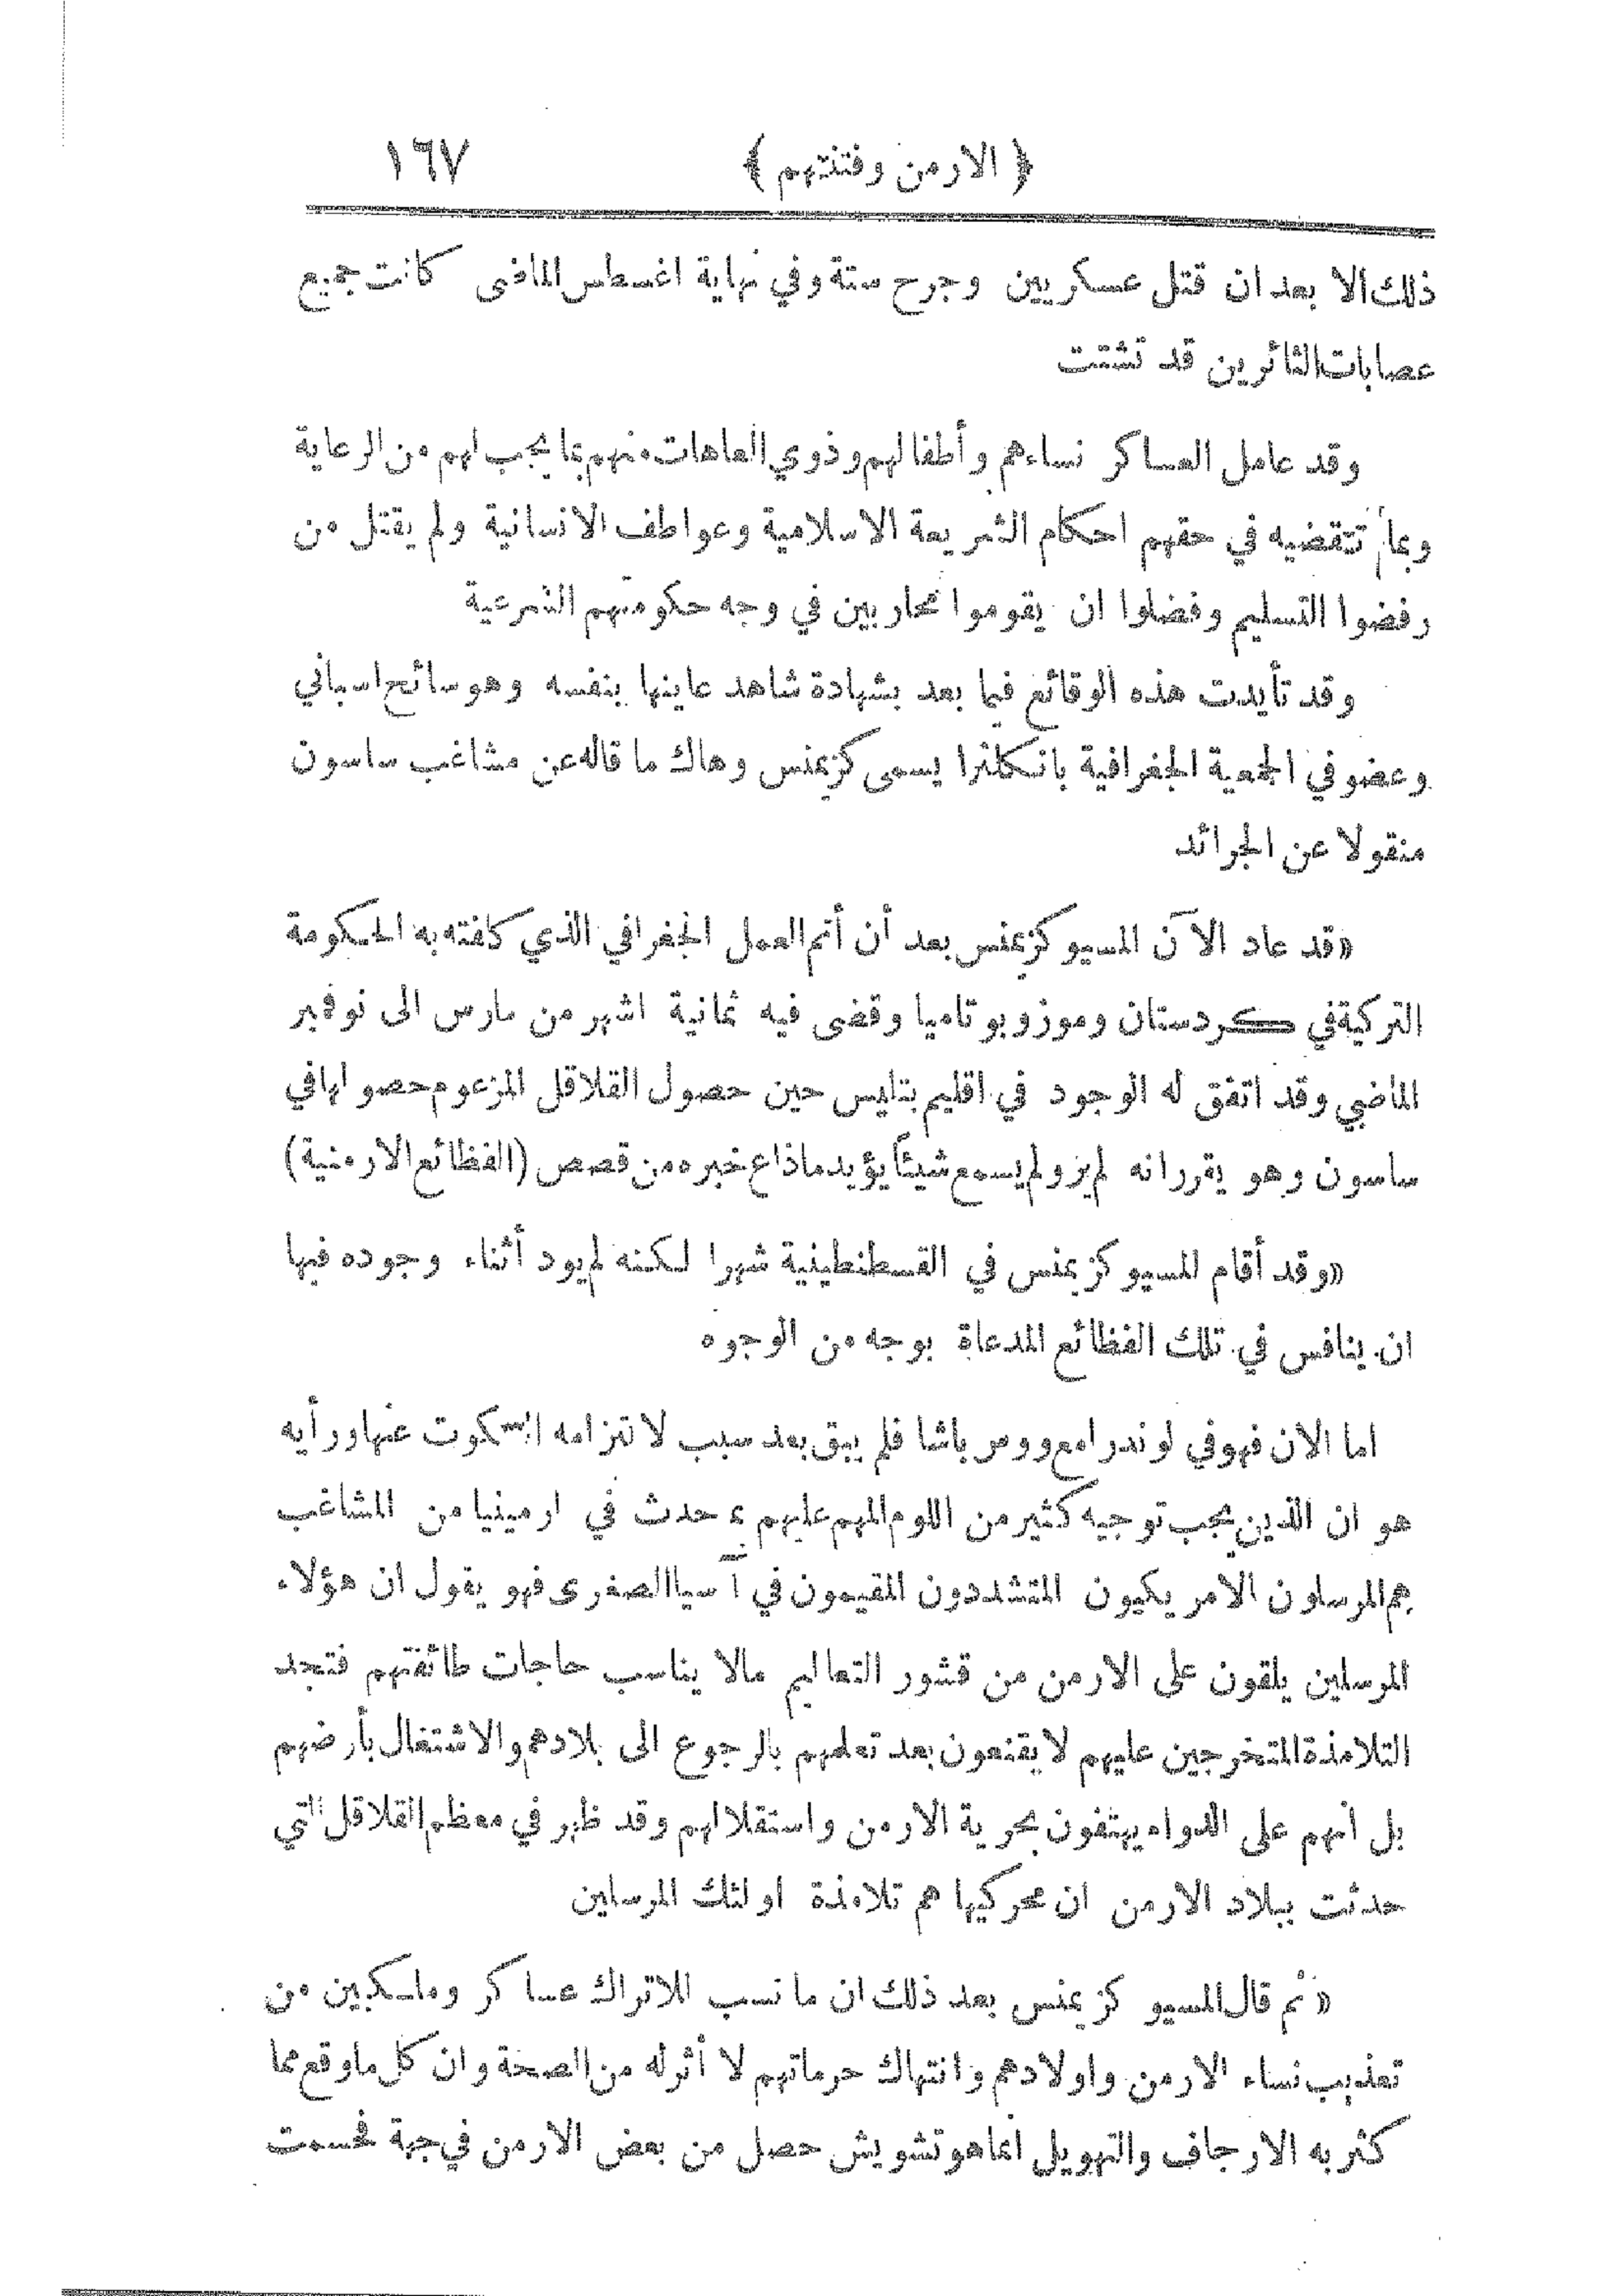 ﴿ الارمن وفتنتهم ﴾ ١٦٧
ذلك الا بعد ان قتل عسكريين وجرح ستة وفي نهاية اغسطس الماضى كانت جميع
عصابات الثائرين قد تشتت
وقد عامل العساكر نساءهم وأطفالهم وذوي العاهات منهم بما يجب لهم من الرعاية
وبما تتقضيه في حقهم احكام الشريعة الاسلامية وعواطف الانسانية ولم يقتل من
رفضوا التسليم وفضلوا ان يقوموا محاربين في وجه حكومتهم الشرعية
وقد تأيدت هذه الوقائع فيما بعد بشهادة شاهد عاينها بنفسه وهو سائح اسباني
وعضو في الجمعية الجغرافية بانكلترا يسمى كزيمنس وهاك ما قاله عن مشاغب ساسون
منقولا عن الجرائد
«قد عاد الآن المسيو كزيمنس بعد أن أتم العمل الجغرافي الذي كلفته به الحكومة
التركية في كردستان وموزوبوتاميا وقضى فيه ثمانية اشهر من مارس الى نوفمبر
الماضي وقد اتفق له الوجود في اقليم بتليس حين حصول القلاقل المزعوم حصولها في
ساسون وهو يقرر انه لم ير ولم يسمع شيئاً يؤيد ماذاع خبره من قصص (الفظائع الارمنية)
«وقد أقام المسيو كزيمنس في القسطنطينية شهرا لكنه لم يود أثناء وجوده فيها
ان ينافس في تلك الفظائع المدعاة بوجه من الوجوه
اما الان فهو في لوندرا مع وومر باشا فلم يبق بعد سبب لا تزامه السكوت عنها ورأيه
هو ان الذين يجب توجيه كثير من اللوم المهم عليهم حدث في ارمينيا من المشاغب
هم المرسلون الامريكيون المتشددون المقيمون في آسيا الصغرى فهو يقول ان هؤلاء
المرسلين يلقون على الارمن من قشور التعاليم مالا يناسب حاجات طائفتهم فتجد
التلامذة المتخرجين عليهم لا يقنعون بعد تعلمهم بالرجوع الى بلادهم والاشتغال بأرضهم
بل أنهم على الدوام يهتفون بحرية الارمن واستقلالهم وقد ظهر في معظم القلاقل التي
حدثت ببلاد الارمن ان محركيها هم تلامذة اولئك المرسلين
«ثم قال المسيو كزيمنس بعد ذلك ان ما نسب للاتراك عساكر وملكيين من
تعذيب نساء الارمن واولادهم وانتهاك حرماتهم لا أثر له من الصحة وان كل ما وقع مما
كثر به الارجاف والتهويل انما هو تشويش حصل من بعض الارمن في جهة فحسمت